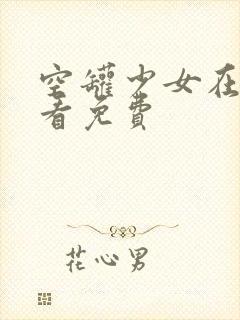 空罐少女在
看免費
花心男